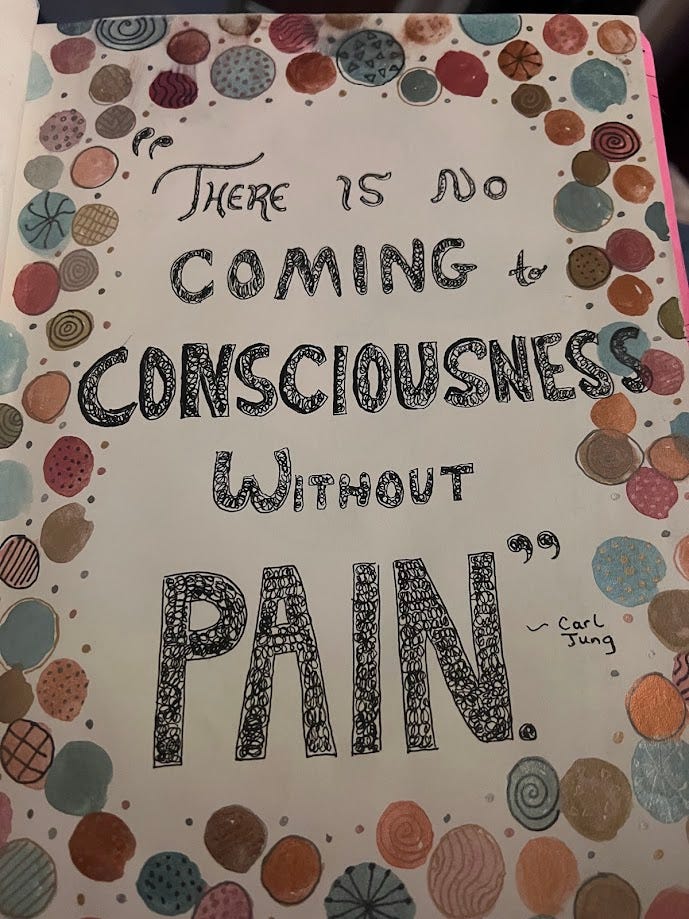 "THERE IS NO
COMING to
CONSCIOUSNESS
WITHOUT
PAIN."
~ Carl
Jung